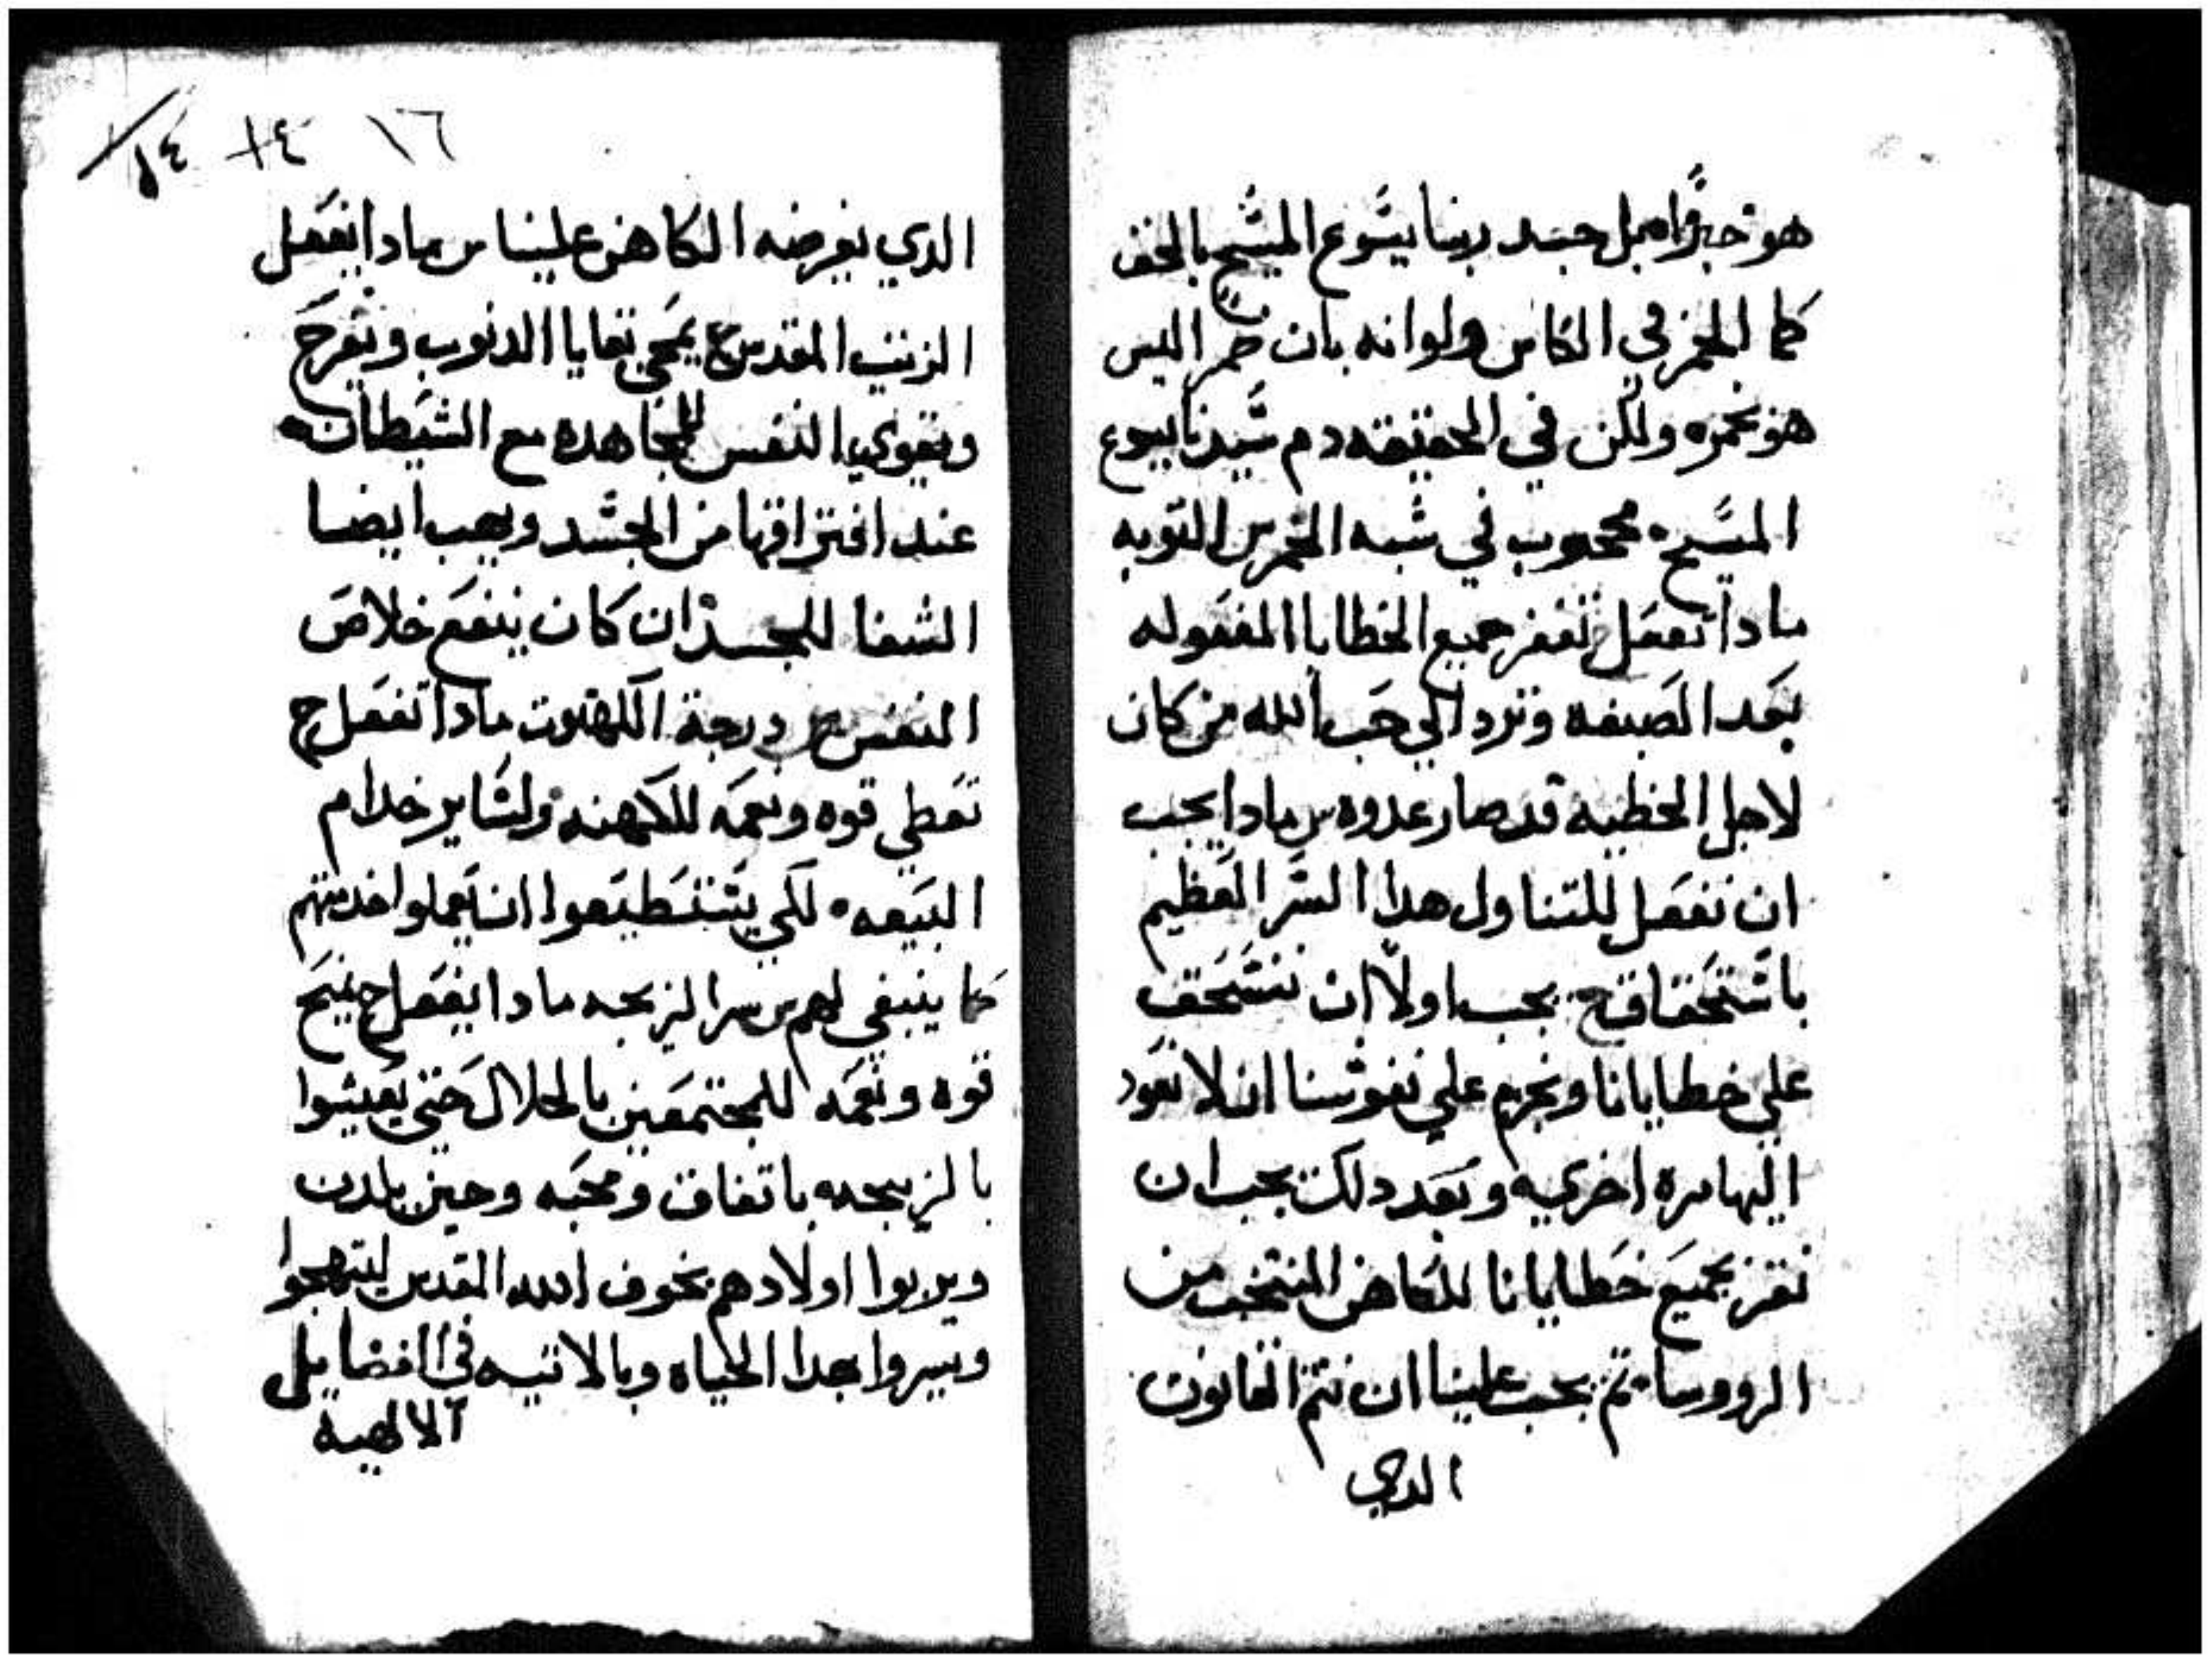 هو خبزًا بل جسد ربنا يسوع المسيح بالحق
كما الخمر في الكاس ولو انه بان خمر اليس
هو بخمره ولكن في الحقيقه دم سيدنا يسوع
المسيح محجوب في شبه الخمر س التوبه
مادا تفعل ج تغفر جميع الخطايا المفعوله
بعد الصبغه وترد الي حب الله من كان
لاجل الخطيه قد صار عدوه س مادا يجب
ان نفعل للتناول هدا السر العظيم
باستحقاق ج يجب اولاً ان
علي خطايانا ونجزم علي نفوسنا ان لا نعود
اليها مره اخري وبعد دلك يجب ان
نقر بجميع خطايانا للكاهن المنتخب من
الرووسا تم يجب علينا ان نتم القانون
الدي
١٦ ١٤ ١٤
الدي يفرضه الكاهن علينا س مادا يفعل
الزيت المقدس ج يمحي بقايا الدنوب ويفرح
ويقوي النفس للمجاهده مع الشيطان
عند افتراقها من الجسد ويهب ايضا
الشفا للجسد ان كان ينفع خلاص
النفس س درجة الكهنوت مادا تفعل ج
تعطي قوه ونعمه للكهنه ولساير خدام
البيعه لكي يستطيعوا ان يعملوا خدمتهم
كما ينبغي لهم س سر الزيجه مادا يفعل ج يمنح
قوه ونعمه للمجتمعين بالحلال حتي يعيشوا
بالزيجه باتفاق ومحبه وحين يلدن
ويربوا اولادهم بخوف الله المقدس ليتهجوا
ويسروا بهدا الحياه وبالاتيه في الفضايل
الالهية